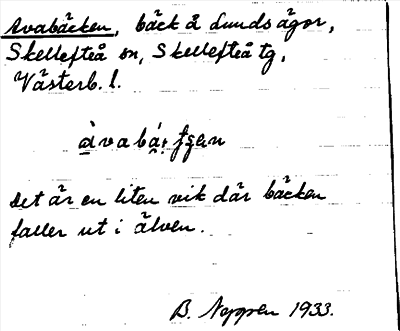 Avabäcken, bäck å Lunds ägor,
Skellefteå sn, Skellefteå tg,
Västerb. l.
det är en liten vik där bäcken
faller ut i älven.
B. Nygren 1933.